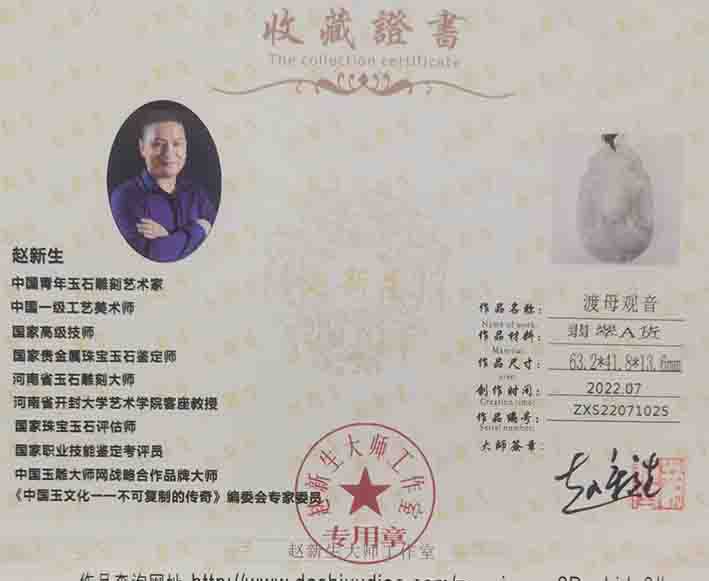 收藏證書
The collection certificate
赵新生
中国青年玉石雕刻艺术家
中国一级工艺美术师
国家高级技师
国家贵金属珠宝玉石鉴定师
河南省玉石雕刻大师
河南省开封大学艺术学院客座教授
国家珠宝玉石评估师
国家职业技能鉴定考评员
中国玉雕大师网战略合作品牌大师
《中国玉文化一一不可复制的传奇》编委会专家委员
作品名称: 渡母观音
Name of work:
作品材料: 翡翠A货
Material:
作品尺寸: 63.2*41.8*13.6mm
size:
创作时间: 2022.07
Creation time:
作品编号: ZXS2207102S
Serial number:
大师签章:
赵新生
赵新生大师工作室
专用章
赵新生大师工作室